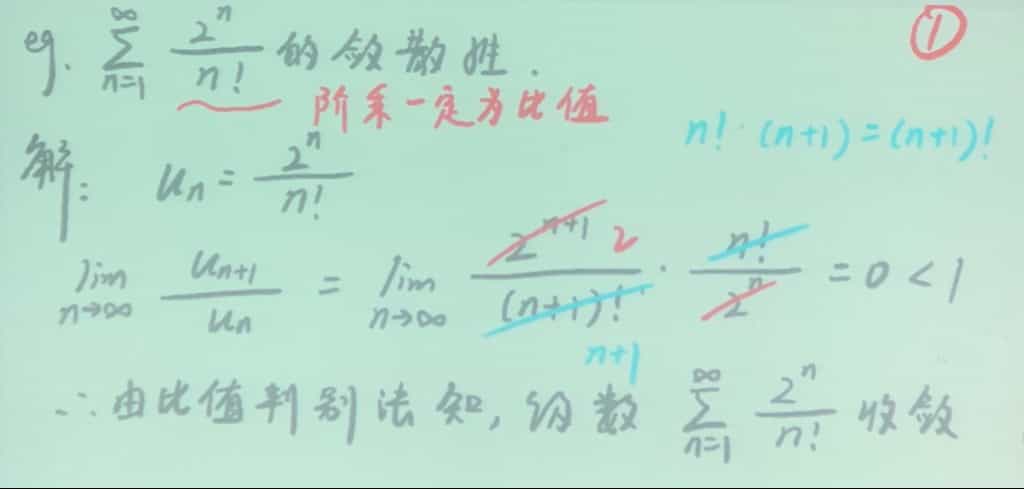 eg. ∑_{n=1}^{∞} 2^n/n! 的敛散性. ①
阶乘一定为比值
n! · (n+1) = (n+1)!
解: u_n = 2^n/n!
lim_{n→∞} u_{n+1}/u_n = lim_{n→∞} 2^{n+1}/(n+1)! · n!/2^n = 0 < 1
2
n+1
∴ 由比值判别法知, 级数 ∑_{n=1}^{∞} 2^n/n! 收敛